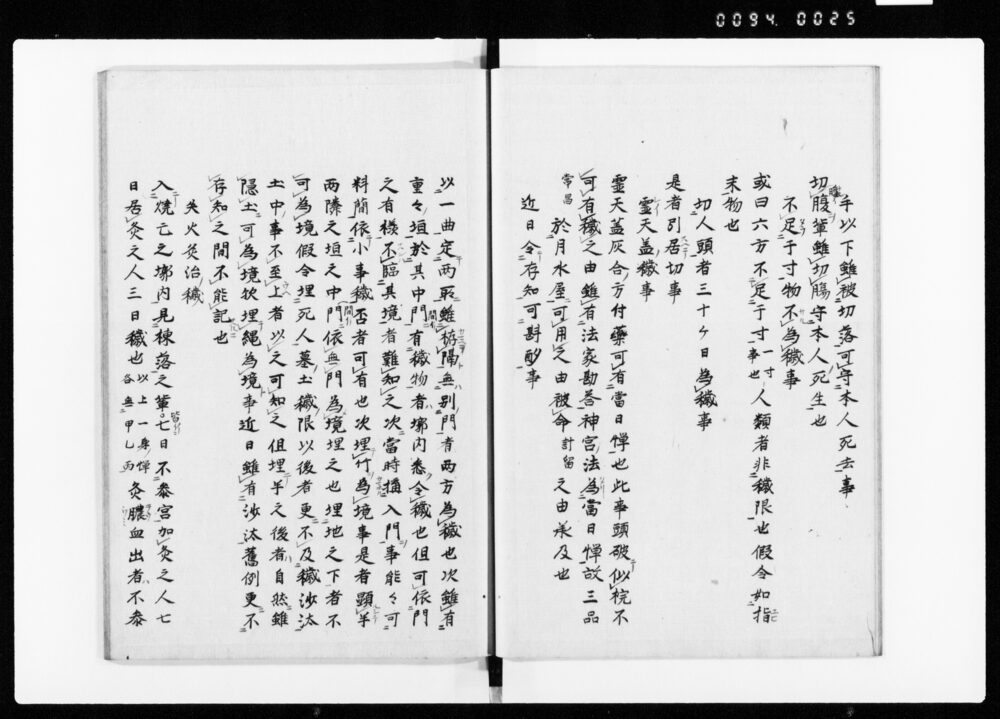 0094.0025
手以下雖被切落可守本人死去事
切腹輩雖切腸守本人死生也
不足于寸物不為穢事
或曰六方不足于寸一寸事也人類者非穢限也假令如指
末物也
切人頭者三十ヶ日為穢事
是者引居切事
霊天蓋穢事
霊天蓋灰合方付藥可有當日憚也此事頭破似椀不
可有穢之由雖有法家勘答神宮法為當日憚故三品
常昌於月水屋可用之由被命計留之由承及也
近日令存知可斟酌事
以一曲定両所雖垣隔無別門者両方為穢也次雖有
重々垣於其中門有穢物者墎内悉令穢也但可依門
之有様不臨其境者難知之次當時猫入門事能々可
料簡依小事穢否者可有也次埋竹為境事是者顕半
両隣之垣之中門依無門為境埋之也埋地之下者不
可為境假令埋死人墓土穢限以後者更不及穢沙汰
土中事不至上者以之可知之但埋半之後者自然雖
隠土可為境次埋縄為境事近日雖有沙汰舊例更不
存知之間不能記也
失火灸治穢
入燒亡之墎内見棟落之輩七日不参宮加灸之人七
日居灸之人三日穢也以上一身憚各無甲乙丙灸膿血出者不参